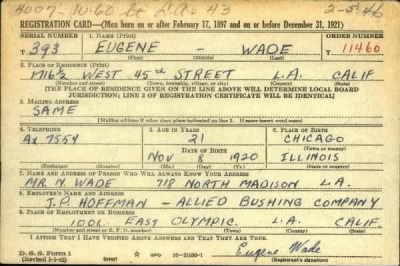 4007 - W. 60 L.A. - 43 2-5-46
REGISTRATION CARD—(Men born on or after February 17, 1897 and on or before December 31, 1921)
SERIAL NUMBER 1. NAME (Print) ORDER NUMBER
T 393 EUGENE - WADE 11460
(First) (Middle) (Last)
2. PLACE OF RESIDENCE (Print)
1716½ WEST 45th STREET L.A. CALIF
(Number and street) (Town, township, village, or city) (County) (State)
[THE PLACE OF RESIDENCE GIVEN ON THE LINE ABOVE WILL DETERMINE LOCAL BOARD
JURISDICTION; LINE 2 OF REGISTRATION CERTIFICATE WILL BE IDENTICAL]
3. MAILING ADDRESS
SAME
[Mailing address if other than place indicated on line 2. If same insert word same]
4. TELEPHONE 5. AGE IN YEARS 6. PLACE OF BIRTH
AX 7554 21 CHICAGO
DATE OF BIRTH (Town or county)
NOV 8 1920 ILLINOIS
(Exchange) (Number) (Mo.) (Day) (Yr.) (State or country)
7. NAME AND ADDRESS OF PERSON WHO WILL ALWAYS KNOW YOUR ADDRESS
MR. N. WADE 718 NORTH MADISON L.A.
8. EMPLOYER'S NAME AND ADDRESS
J.P. HOFFMAN - ALLIED BUSHING COMPANY
9. PLACE OF EMPLOYMENT OR BUSINESS
1006 EAST OLYMPIC L.A. CALIF
(Number and street or R. F. D. number) (Town) (County) (State)
I AFFIRM THAT I HAVE VERIFIED ABOVE ANSWERS AND THAT THEY ARE TRUE.
D. S. S. Form 1
Eugene Wade